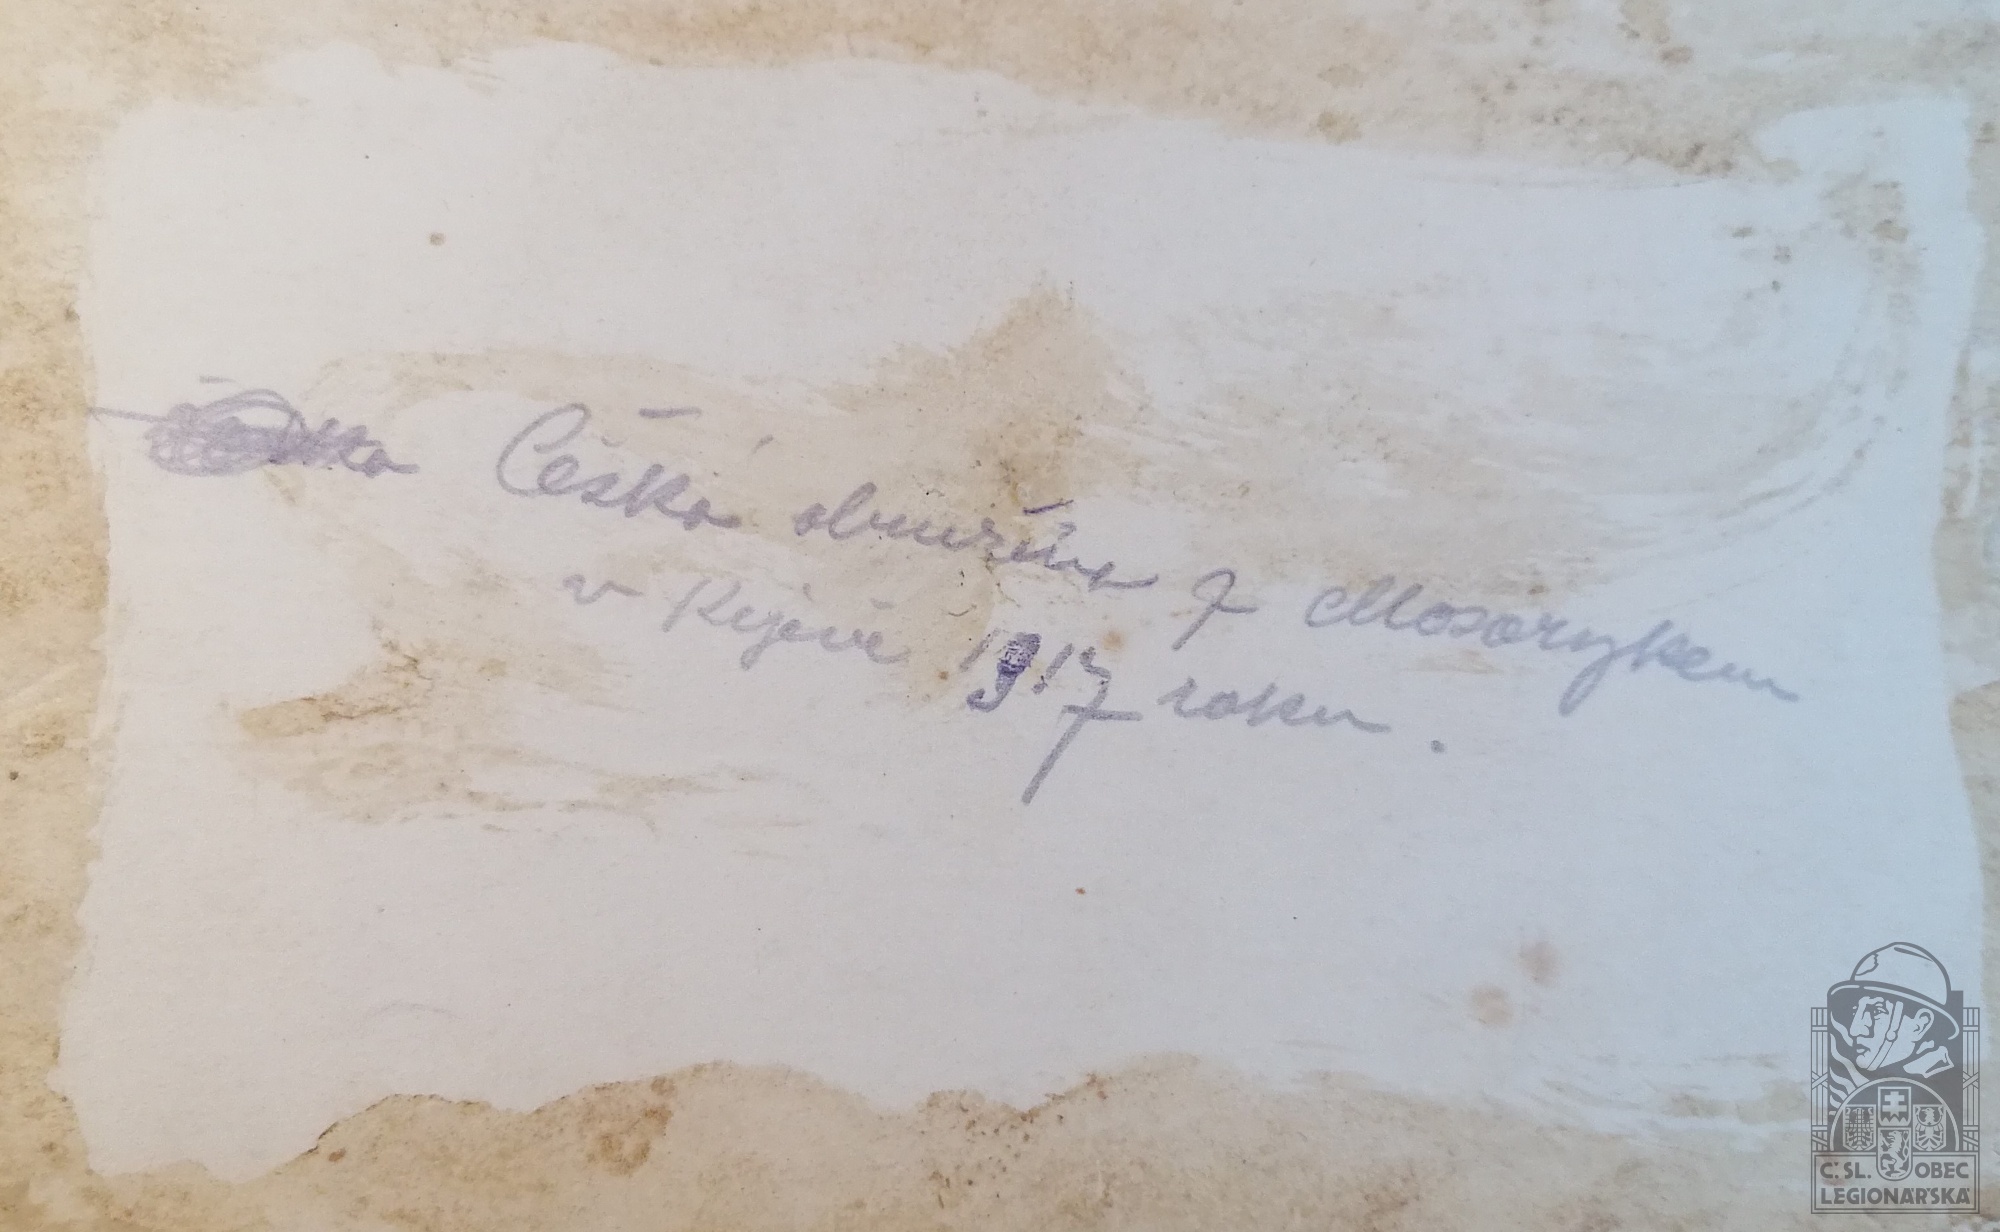 Česká obvužina z Masarykem
v Kyjevě 1917 roku.
Č. SL. OBEC
LEGIONÁŘSKÁ